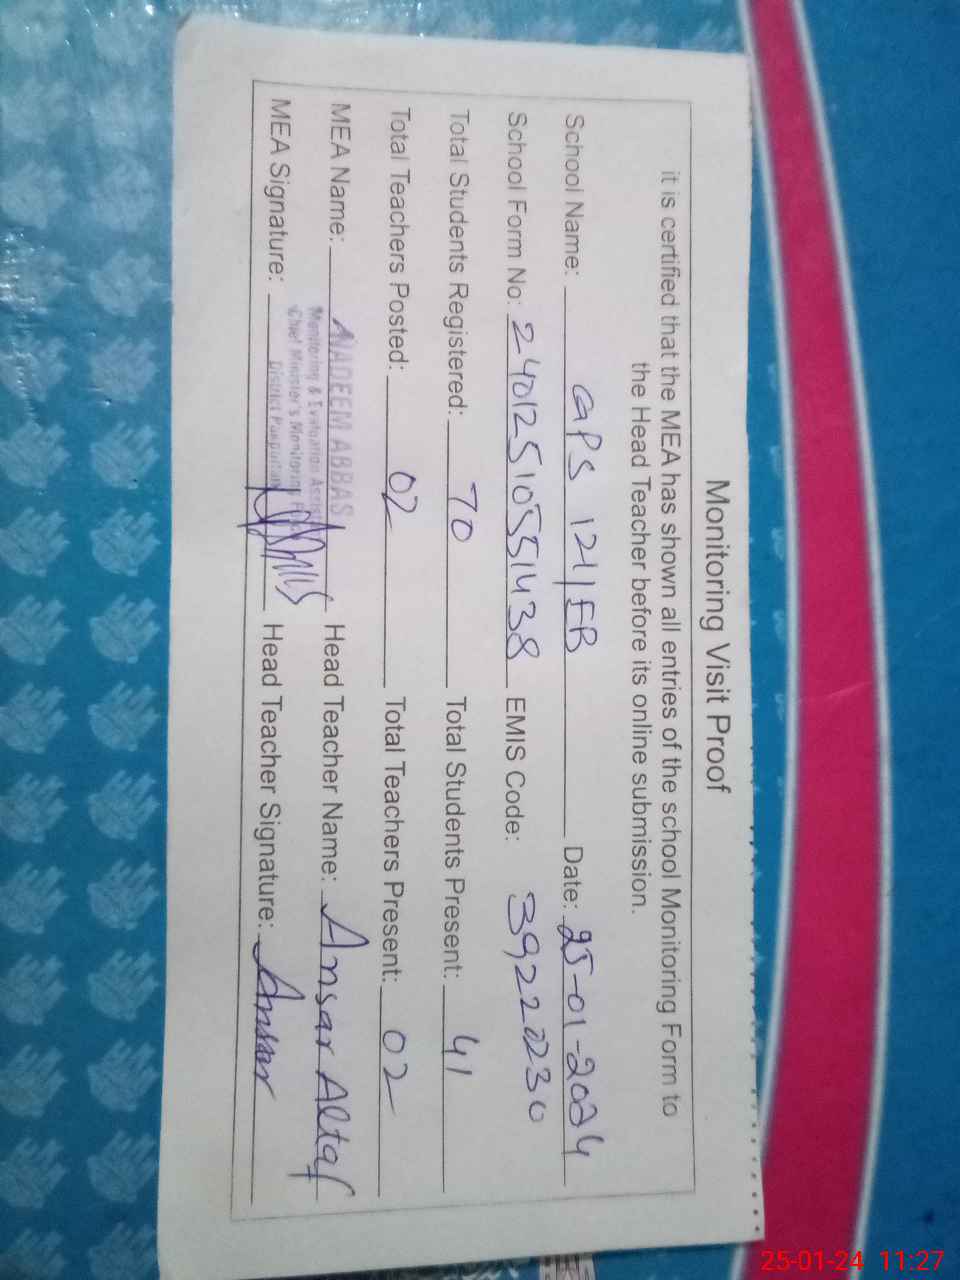 Monitoring Visit Proof
it is certified that the MEA has shown all entries of the school Monitoring Form to
the Head Teacher before its online submission.
School Name: GPS 121/EB Date: 25-01-2024
School Form No: 24012510551438 EMIS Code: 39220230
Total Students Registered: 70 Total Students Present: 41
Total Teachers Posted: 02 Total Teachers Present: 02
MEA Name: NADEEM ABBAS Head Teacher Name: Ansar Altaf
Monitoring & Evaluation
Chief Minister's Monitoring
District Pakpattan
MEA Signature: Head Teacher Signature: Ansar
25-01-24 11:27